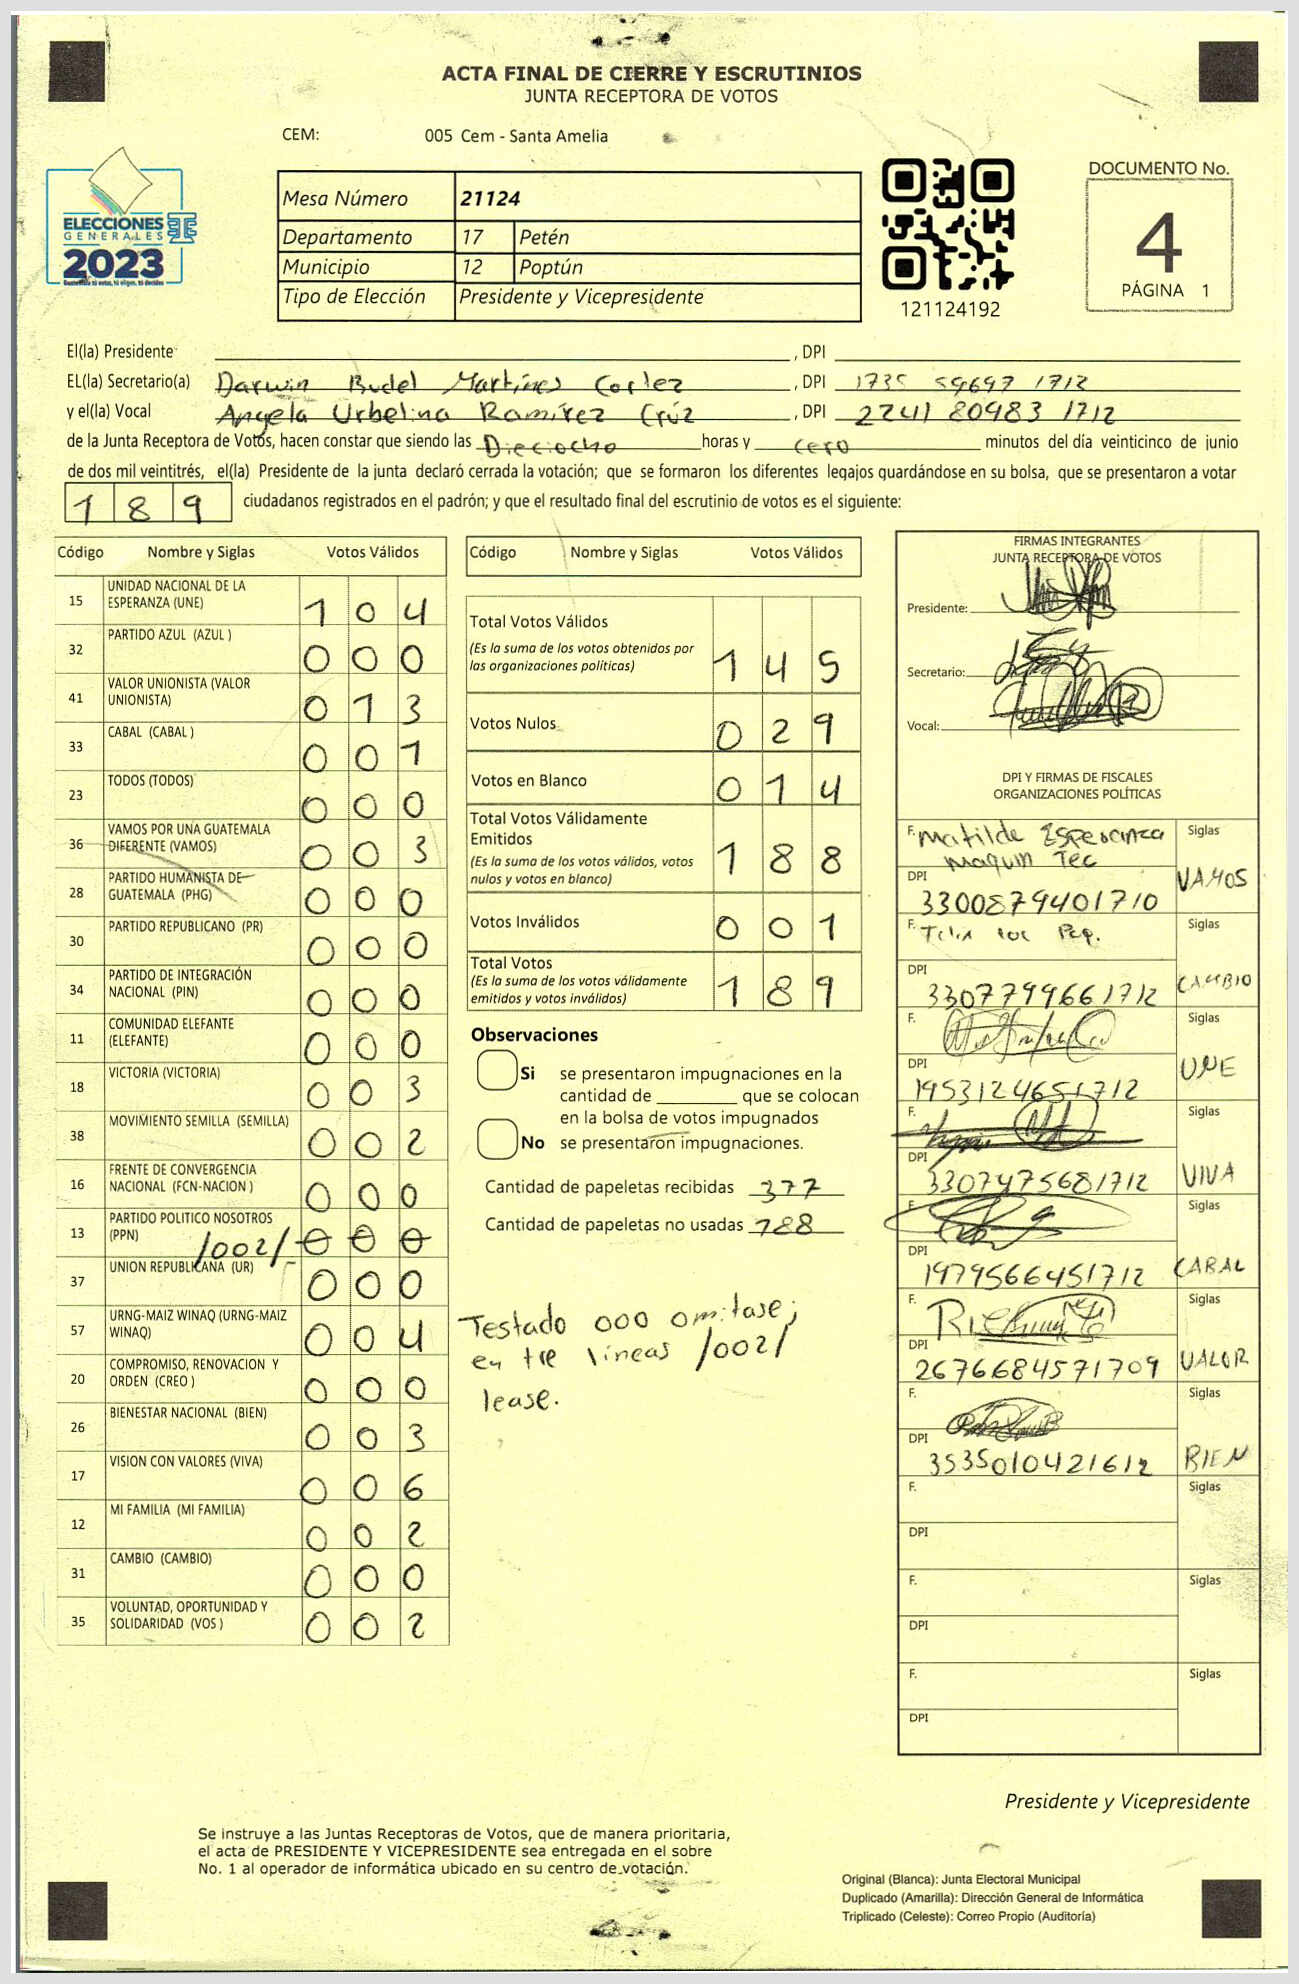 ACTA FINAL DE CIERRE Y ESCRUTINIOS
JUNTA RECEPTORA DE VOTOS
CEM: 005 Cem - Santa Amelia
ELECCIONES
GENERALES
2023
Mesa Número 21124
Departamento 17 Petén
Municipio 12 Poptún
Tipo de Elección Presidente y Vicepresidente
121124192
DOCUMENTO No.
4
PÁGINA 1
El(la) Presidente , DPI
EL(la) Secretario(a) Darwin Budel Martínez Cortez , DPI 1735 59697 1712
y el(la) Vocal Angela Urbelina Ramírez Crúz , DPI 2241 80483 1712
de la Junta Receptora de Votos, hacen constar que siendo las Dieciocho horas y cero minutos del día veinticinco de junio
de dos mil veintitrés, el(la) Presidente de la junta declaró cerrada la votación; que se formaron los diferentes legajos guardándose en su bolsa, que se presentaron a votar
189 ciudadanos registrados en el padrón; y que el resultado final del escrutinio de votos es el siguiente:
Código Nombre y Siglas Votos Válidos
15 UNIDAD NACIONAL DE LA ESPERANZA (UNE) 104
32 PARTIDO AZUL (AZUL ) 000
41 VALOR UNIONISTA (VALOR UNIONISTA) 013
33 CABAL (CABAL ) 001
23 TODOS (TODOS) 000
36 VAMOS POR UNA GUATEMALA DIFERENTE (VAMOS) 003
28 PARTIDO HUMANISTA DE GUATEMALA (PHG) 000
30 PARTIDO REPUBLICANO (PR) 000
34 PARTIDO DE INTEGRACIÓN NACIONAL (PIN) 000
11 COMUNIDAD ELEFANTE (ELEFANTE) 000
18 VICTORIA (VICTORIA) 003
38 MOVIMIENTO SEMILLA (SEMILLA) 002
16 FRENTE DE CONVERGENCIA NACIONAL (FCN-NACION ) 000
13 PARTIDO POLITICO NOSOTROS (PPN) /002/ 000
37 UNION REPUBLICANA (UR) 000
57 URNG-MAIZ WINAQ (URNG-MAIZ WINAQ) 004
20 COMPROMISO, RENOVACION Y ORDEN (CREO ) 000
26 BIENESTAR NACIONAL (BIEN) 003
17 VISION CON VALORES (VIVA) 006
12 MI FAMILIA (MI FAMILIA) 002
31 CAMBIO (CAMBIO) 000
35 VOLUNTAD, OPORTUNIDAD Y SOLIDARIDAD (VOS ) 002
Código Nombre y Siglas Votos Válidos
Total Votos Válidos 145
(Es la suma de los votos obtenidos por
las organizaciones políticas)
Votos Nulos 029
Votos en Blanco 014
Total Votos Válidamente
Emitidos 188
(Es la suma de los votos válidos, votos
nulos y votos en blanco)
Votos Inválidos 001
Total Votos 189
(Es la suma de los votos válidamente
emitidos y votos inválidos)
Observaciones
Si se presentaron impugnaciones en la
cantidad de que se colocan
en la bolsa de votos impugnados
No se presentaron impugnaciones.
Cantidad de papeletas recibidas 377
Cantidad de papeletas no usadas 188
Testado 000 omitase;
entre líneas /002/
lease.
FIRMAS INTEGRANTES
JUNTA RECEPTORA DE VOTOS
Presidente:
Secretario:
Vocal:
DPI Y FIRMAS DE FISCALES
ORGANIZACIONES POLÍTICAS
F. Matilde Esperanza Siglas
Maquin Tec
DPI 3300879401710 VAMOS
F. Siglas
DPI 3307799661712 CAMBIO
F. Siglas
DPI 1953124651712 UNE
F.
DPI 3307475681712 VIVA
F. Siglas
DPI 1979566451712 CABAL
F. Siglas
DPI 2676684571709 VALOR
F. Siglas
DPI 3535010421612 BIEN
F. Siglas
DPI
F. Siglas
DPI
F. Siglas
DPI
Presidente y Vicepresidente
Se instruye a las Juntas Receptoras de Votos, que de manera prioritaria,
el acta de PRESIDENTE Y VICEPRESIDENTE sea entregada en el sobre
No. 1 al operador de informática ubicado en su centro de votación.
Original (Blanca): Junta Electoral Municipal
Duplicado (Amarilla): Dirección General de Informática
Triplicado (Celeste): Correo Propio (Auditoría)